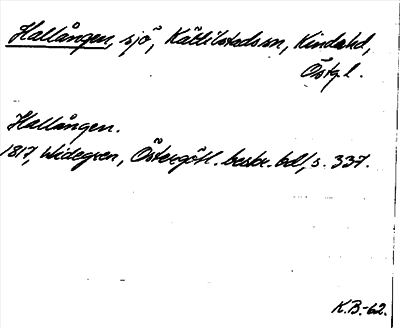 Hallången, sjö, Kättilstads sn, Kinds hd,
Östg. l.
Hallången.
1817, Widegren, Östergötl. beskr. bd 1, s. 337.
K.B.-62.